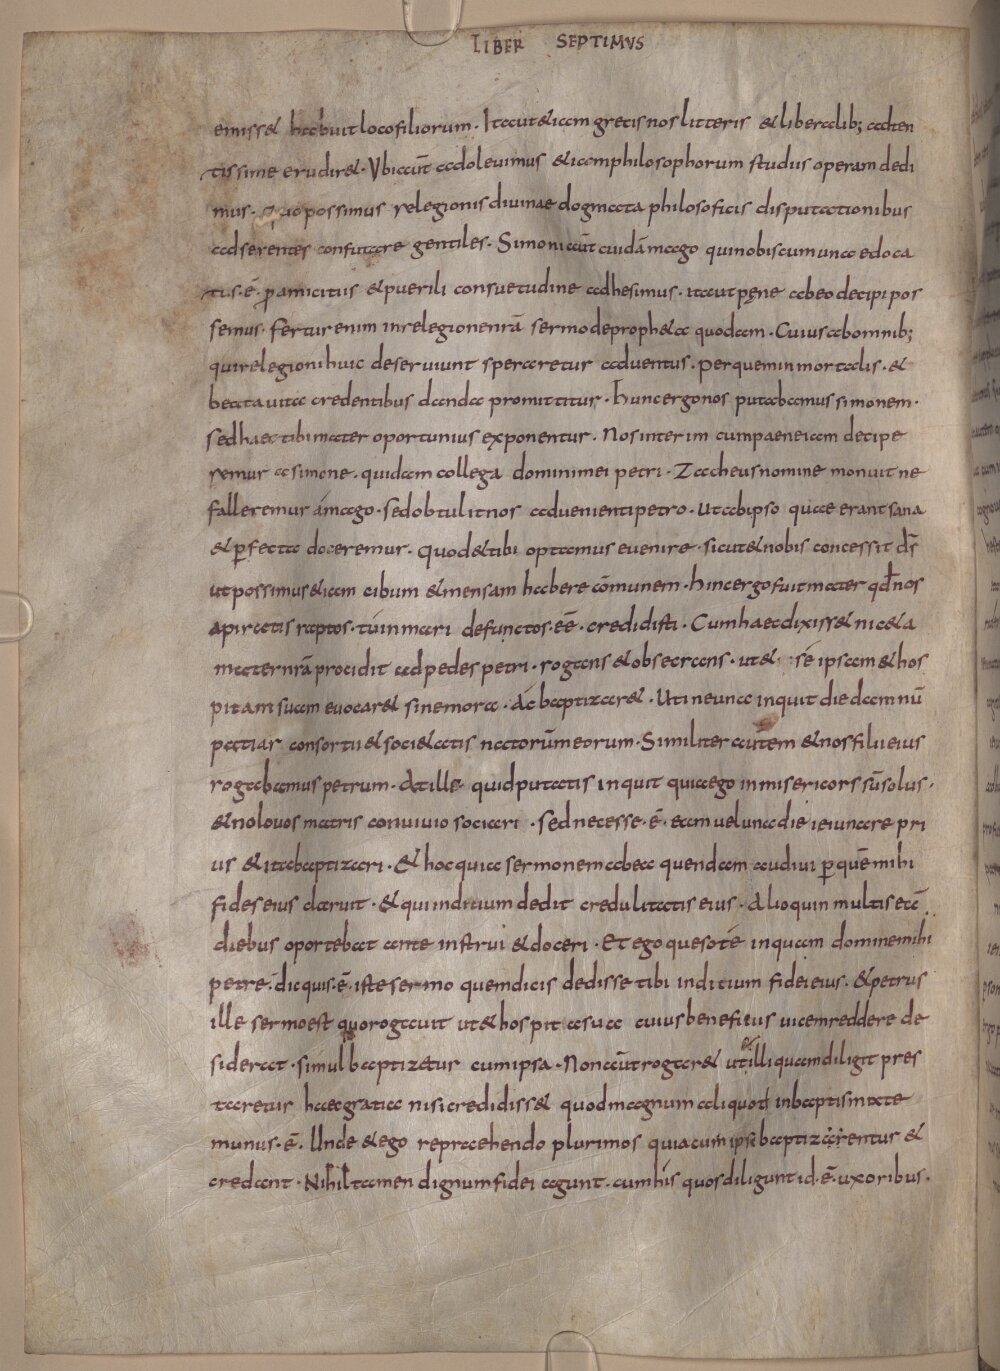 LIBER SEPTIMVS
emisset habuit loco filiorum. Ita ut etiam grecis nos litteris et liberalib; adten
tissime erudiret. Vbi aūt adolevimus etiam philosophorum studiis operam dedi
mus. quo possimus relegionis divinae dogmata philosoficis disputationibus
adserentes confutare gentiles. Simoni aūt cuidā mago qui nobiscum una edoca
tus. ē. p amicitiis et puerili consuetudine adhesimus. ita ut pęne ab eo decipi pos
semus. fertur enim in relegione nrā sermo de propheta quodam. Cuius ab omnib;
qui relegioni huic deserviunt speraretur adventus. per quem inmortalis. et
beata vita credentibus danda promittitur. Hunc ergo nos putabamus simonem.
sed haec tibi mater oportunius exponentur. Nos interim cum paene iam decipe
remur a simone. quidam collega domini mei petri. Zacheus nomine monuit ne
falleremur á mago. sed obtulit nos advenienti petro. ut ab ipso quae erant sana
et pfecta doceremur. quod et tibi optamus evenire. sicut et nobis concessit d̄s
ut possimus etiam cibum et mensam habere cōmunem. hinc ergo fuit mater qd̄ nos
a piratis raptos. tu in mari defunctos. eē. credidisti. Cum haec dixisset niceta
mater nrā procidit ad pedes petri. rogans et obsecrans. ut et sé ipsam et hos
pitam suam evocaret sine mora. Ác baptizaret. Uti ne una inquit die dam nū
patiar consortii et societatis natorūm eorum. Similiter autem et nos filii eius
rogabamus petrum. At ille. quid putatis inquit quia ego inmisericors sū solus.
et nolo vos matris convivio sociari. sed necesse. ē. eam vel una die ieiunare pri
us et ita baptizari. Et hoc quia sermonem ab ea quendam audivi p quēm mihi
fides eius claruit. et qui inditium dedit credulitatis eius. Alioquin multis etā
diebus oportebat ante instrui et doceri. Et ego queso té inquam domine mihi
petre. dic quis. ē. iste sermo quem dicis dedisse tibi inditium fidei eius. et petrus
ille sermo est quo rogavit ut et hospita sua cuius beneficiis vicem reddere de
siderat. simul baptizetur cum ipsa. Non aūt rogaret ut illi quam diligit pres
taretur haec gratia nisi credidisset quod magnum aliquod in baptismate
munus. ē. Unde et ego reprehendo plurimos quia cum ipsi baptizarentur et
credant. Nihil tamen dignum fidei agunt. cum his quos diligunt id. ē. uxoribus.